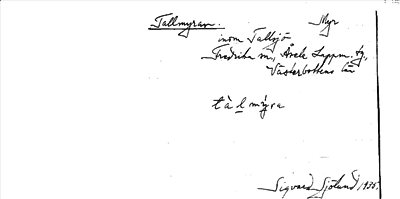 Tallmyran. Myr
inom Tallsjö
Fredrika sn, Åsele Lappm. tg,
Västerbottens län
tàlmýra
Sigvard Sjölund 1935.